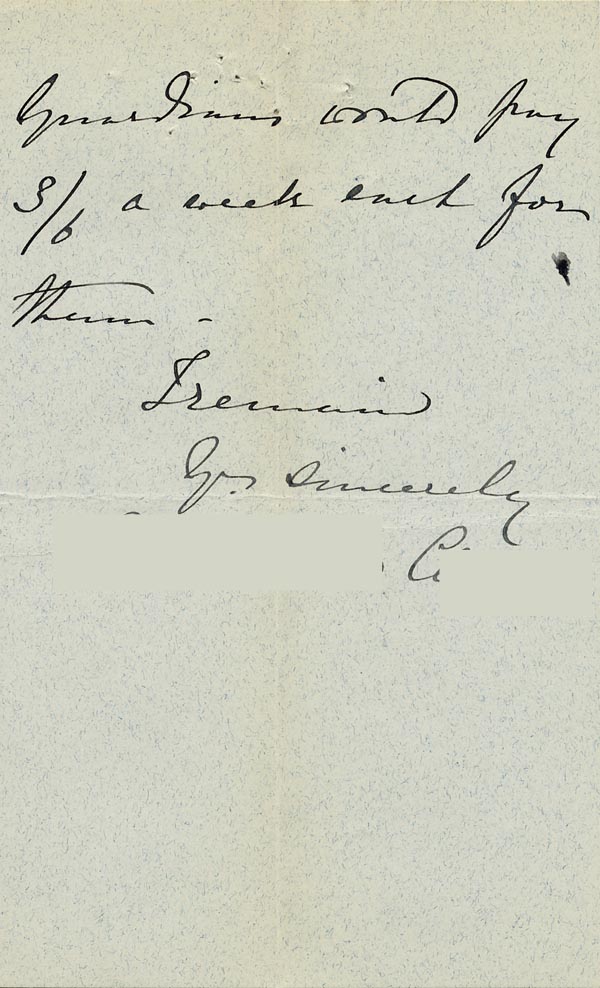 Guardians would pay
3/6 a week each for
them -
I remain
Yrs sincerely